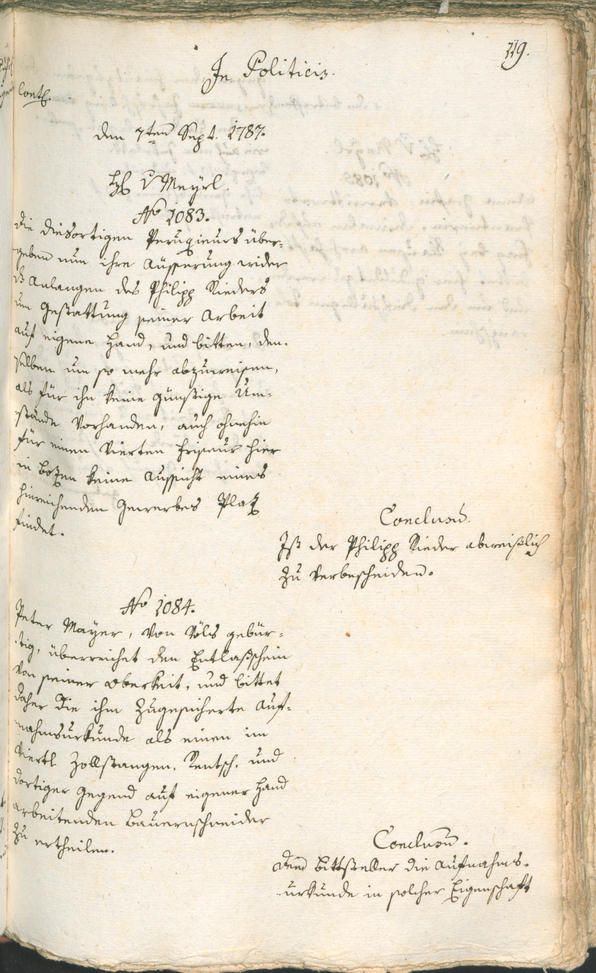 119.
In Politicis.
Contl.
den 7ten Sept. 1787.
H V Meyrl.
No 1083.
Die diesortigen Peruquieurs über-
geben nun ihre Äusserung wider
das Anlangen des Philipp Rieders
um Gestattung seiner Arbeit
auf eigene Hand, und bitten, den-
selben um so mehr abzuweisen,
als für ihn keine günstige Um-
stände vorhanden, auch ohnehin
für einen vierten Friseur hier
in Bozen keine Aussicht eines
hinreichenden Gewerbes Platz
findet.
Conclusū.
Ist der Philipp Rieder abweislich
zu verbescheiden.
No 1084.
Peter Mayer, von Völs gebür-
tig, überreichet den Entlaßschein
von seiner Oberkeit, und bittet
daher die ihm zugesicherte Auf-
nahmsurkunde als einen im
Viertl Zollstangen, Rentsch, und
dortiger Gegend auf eigener Hand
arbeitenden Bauernschneider
zu ertheilen.
Conclusū.
Dem Bittsteller die Aufnahms-
urkunde in solcher Eigenschaft